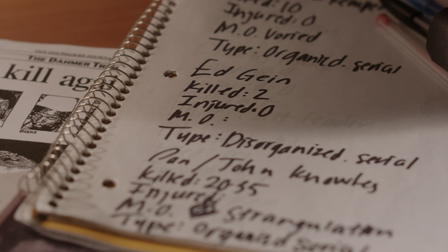 THE DAHMER TR
kill aga
Killed: 10
Injured: 0
M.O. Varied
Type: Organized. serial
Ed Gein
Killed: 2
Injured: 0
M.O.:
Type: Disorganized. serial
Pan/John Knowles
Killed: 20-35
Injured:
M.O. Strangulation
Type: Organized Serial